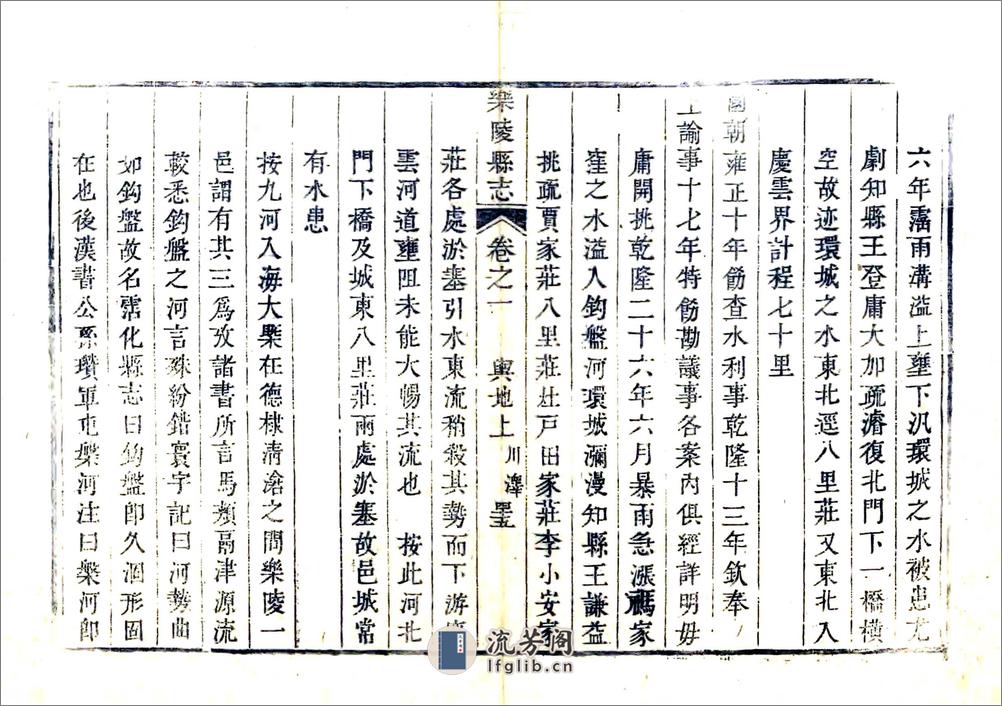 六年霪雨溝溢上壅下汎環城之水被患尤
劇知縣王登庸大加疏濬復北門下一橋橫
空故迹環城之水東北逕八里莊又東北入
慶雲界計程七十里
國朝雍正十年飭查水利事乾隆十三年欽奉
上諭事十七年特飭勘議事各案內俱經詳明毋
庸開挑乾隆二十六年六月暴雨急漲禡家
窪之水溢入鈎盤河環城瀰漫知縣王謙益
挑疏賈家莊八里莊杜戶田家莊李小安家
樂陵縣志
卷之一
輿地上
川澤
莊各處淤塞引水東流稍殺其勢而下游慶
雲河道壅阻未能大暢其流也 按此河北
門下橋及城東八里莊兩處淤塞故邑城常
有水患
按九河入海大槩在德棣清滄之間樂陵一
邑謂有其三為攷諸書所言馬頰鬲津源流
較悉鈎盤之河言殊紛錯寰宇記曰河勢曲
如鈎盤故名霑化縣志曰鈎盤卽久涸形固
在也後漢書公孫瓚軍屯槃河注曰槃河卽
流芳阁
lfglib.cn